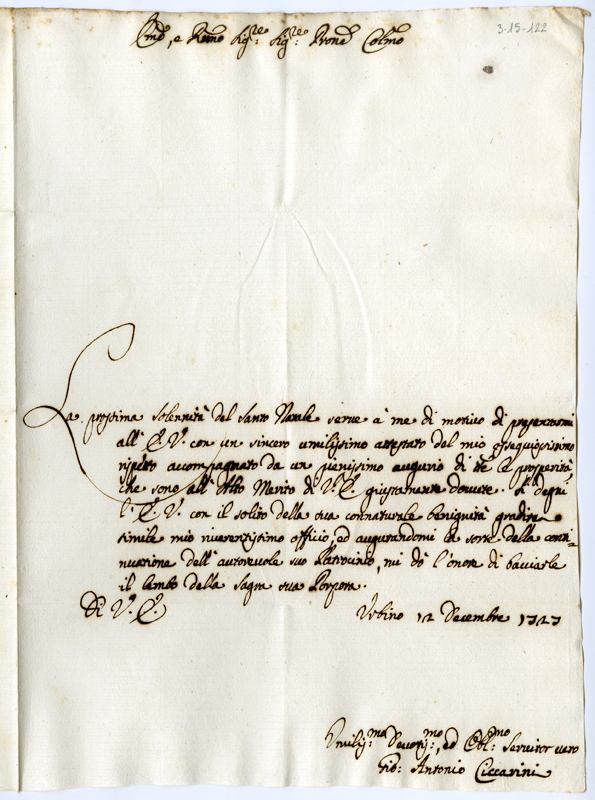 3-15-122
Emo, e Remo Sigre: Sigre: Prone Colmo
La prossima solennità del Santo Natale serve à me di motivo di presentarmi
all' E. V. con un sincero umilissimo attestato del mio ossequiosissimo
rispetto accompagnato da un pienissimo augurio di tte le prosperità
che sono all' Alto Merito di V. E. giustamente dovute. Si degni
l' E. V. con il solito della sua connaturale benignità gradire
simile mio riverentissimo officio, ed augurandomi la sorte della conti-
nuazione dell' autorevole suo Patrocinio, mi dò l'onore di bacciarle
il lembo della Sagra sua Porpora.
Di V. E.
Urbino 12 Decembre 1727
Umilismo Devotismo, ed Oblmo: Servitor vero
Gio: Antonio Ciccarini